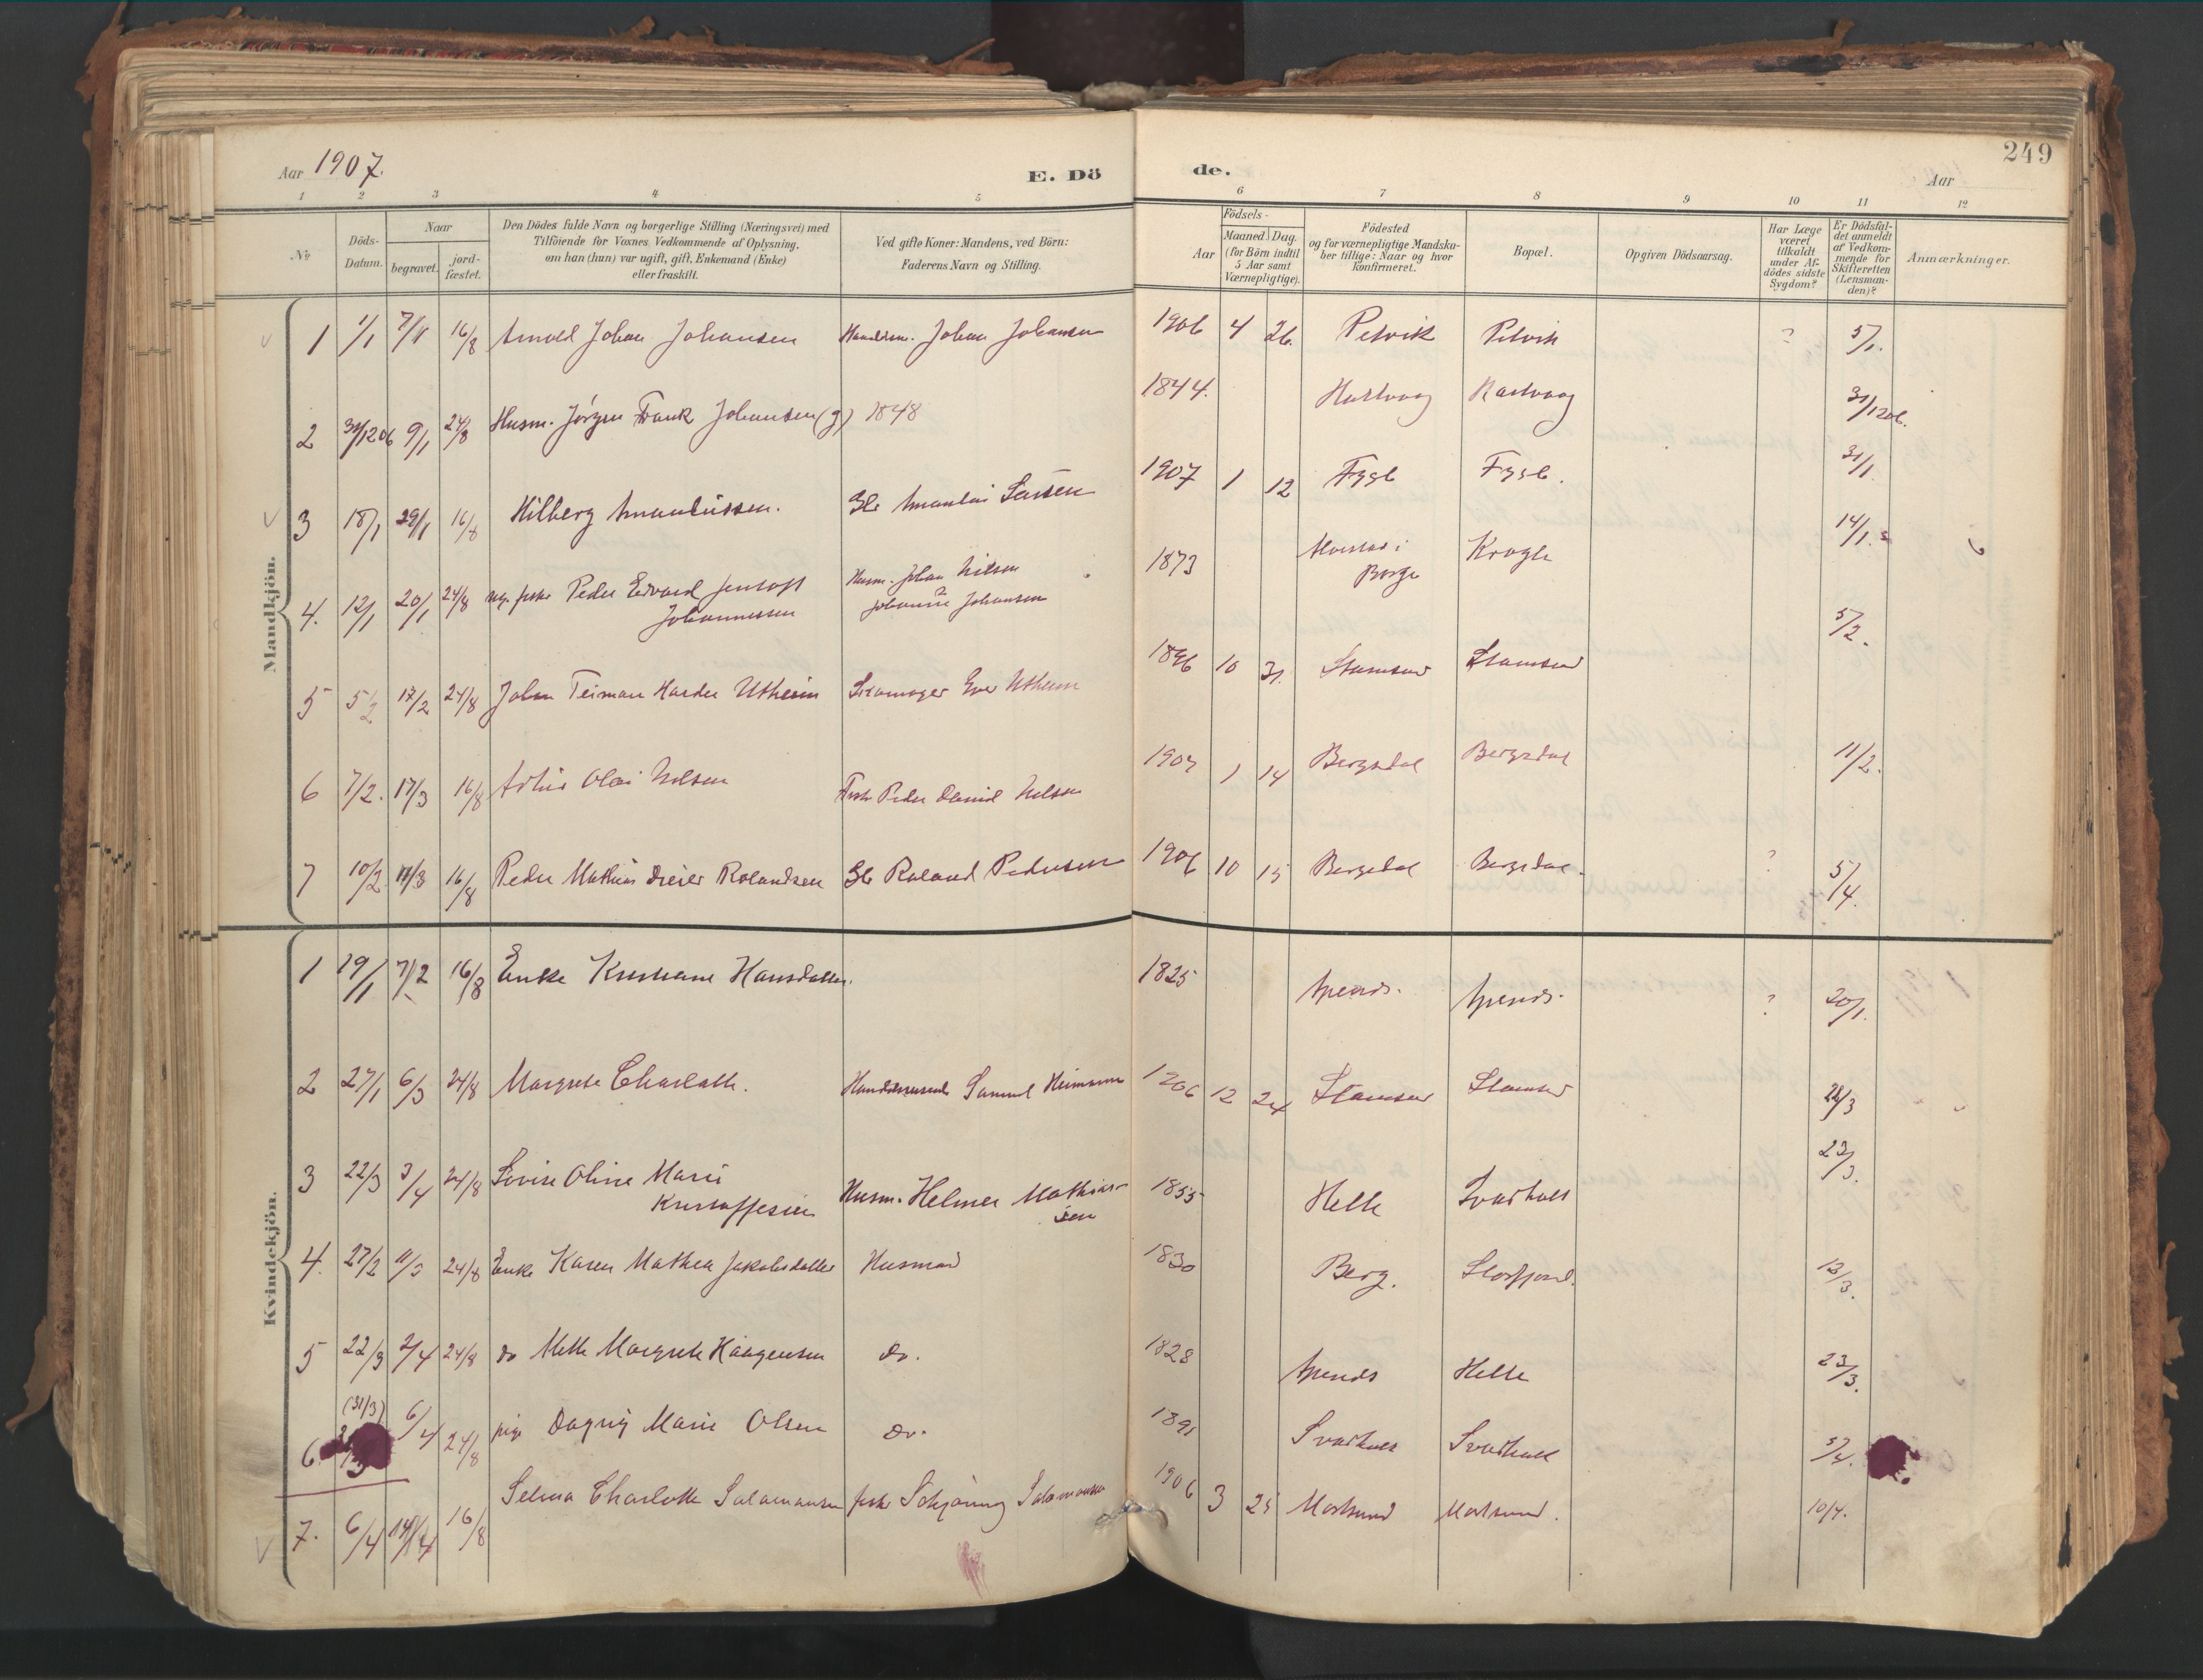 249
Aar 1907.
E. Dö
de.
Aar
1 2 3 4 5 6 7 8 9 10 11 12
No
Döds-
Datum.
Naar
begravet.
jord-
fæstet.
Den Dödes fulde Navn og borgerlige Stilling (Næringsvei) med
Tilföiende for Voxnes Vedkommende af Oplysning,
om han (hun) var ugift, gift, Enkemand (Enke)
eller fraskilt.
Ved gifte Koner: Mandens, ved Börn:
Faderens Navn og Stilling.
Födsels-
Aar
Maaned. Dag.
(for Börn indtil
5 Aar samt
Værnepligtige).
Födested
og for værnepligtige Mandska-
ber tillige: Naar og hvor
konfirmeret.
Bopæl.
Opgiven Dödsaarsag.
Har Læge
været
tilkaldt
under Af-
dödes sidste
Sygdom?
Er Dödsfal-
det anmeldt
af Vedkom-
mende for
Skifteretten
(Lensman-
den)?
Anmærkninger.
Mandkjön.
1 1/1 7/1 16/8 Arnold Johan Johansen Johan Johansen 1906 4 26. Petvik Petvik ? 5/1.
2 31/12 06 9/1 24/8 Husm. Jörgen Frank Johansen (g) 1848 1844. Hartvaag Hartvaag 31/12 06.
3 18/1 29/1 16/8 Hilberg Amandussen. Larsen 1907 1 12 Fygle Fygle. 31/1.
4. 12/1 20/1 24/8 Peder Edvard Jentoft Husm. Johan Nilsen 1873 i Krogle 14/1.
Johannessen Johansen Borge
5 5/2 17/2 24/8 Johan Teiman Harder Utheim Skomager Utheim 1896 10 31. Stamsund Stamsund 5/2.
6 7/2. 17/3 16/8 Olai Nilsen Peder Daniel Nilsen 1907 1 14 Bergsdal Bergsdal 11/2.
7 10/2 11/3 16/8 Peder Mathias Dreier Rolandsen Roland Pedersen 1906 10 15 Bergsdal Bergsdal. ? 5/4.
Kvindekjön.
1 19/1 7/2 16/8 Enke Kristiane Hansdatter. 1825 ? 20/1.
2 27/1 6/3 24/8 Margrete Charlotte. Samuel 1906 12 24 Stamsund Stamsund 22/3
3 22/3 3/4 24/8 Lovise Oline Marie Husm. Helmer Mathias- 1855 Helle Svarholt 23/3.
Kristoffersen sen
4. 27/2 11/3 24/8 Enke Karen Mathea Jakobsdatter Husmand 1830 Berg. Storfjord. 13/3.
5 22/3 2/4 24/8 do Mette Margrete Haagensen do. 1828 Helle 23/3.
(31/3)
6. 6/4 24/8 pige Dagny Marie Olsen do. 1891 Svarholt Svarholt 5/4.
7. 6/4 14/4 16/8 Selma Charlotte Salamonsen fisk. Schjöning Salamonsen 1906 3 25 Mortsund Mortsund. 10/4.